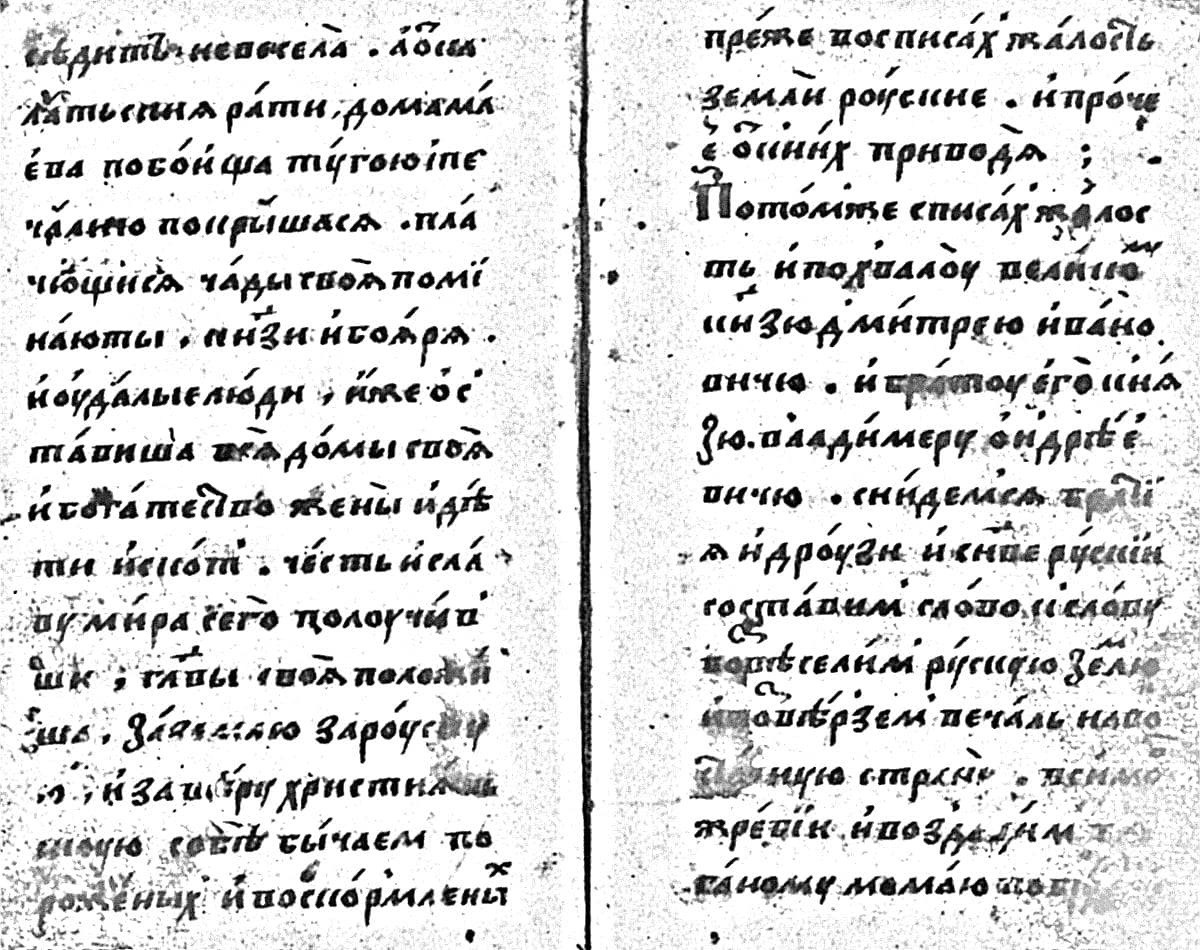 сѣдитъ невесела . а҆ ѿ кал
атьскиꙗ ра́ти, до мама́
е́ва побо́ища ту́гою і пе
ча́лию покры́шасѧ . пла
чю́щисѧ ча́ды своѧ̀ помі
на́юты . кнѧ҃зи и҆ боѧ́рѧ .
и҆ оуда́лые лю́ди , и҆́же ѻс
та́виша всѧ̀ до́мы своѧ̀
и҆ бога́тество жены̀ и҆ дѣ́
ти и҆ ско́т . че́сть и҆ сла́
ву ми́ра сего̀ получи́в
ши ; гла҃вы своѧ̀ положи́
ша . за́ землю за роу́скую
и҆ за вѣ́ру христиꙗ́нь
скую собѣ̀ бы́чаем по
роже́ных и҆ воско́рмлены̾х
пре́же восписа́х жа́лость
земли̾ роу́ские . и҆ про́че
е ѿ кни́г приводѧ̀ ;
Пото́мже списа́х жа́лос
ть и҆ похвалоу̀ вели́кому
кнѧ҃зю дми́трею и҆ва́но
вичю . и҆ бра́тоу его̀ кнѧ́
зю . влади́меру ѻндрѣ́е
вичю . сни́демсѧ бра́тї
ꙗ и҆ дро́узи и҆ сн҃ве ру́скїи
соста́вим сло́во к сло́ву
возвесели́м ру́скую зе́млю
и҆ ѿве́рзем печа́ль на во
сто́чную страну̀ . в симо
в жре́бїи и҆ возда́дим
га́ному мома́ю побе